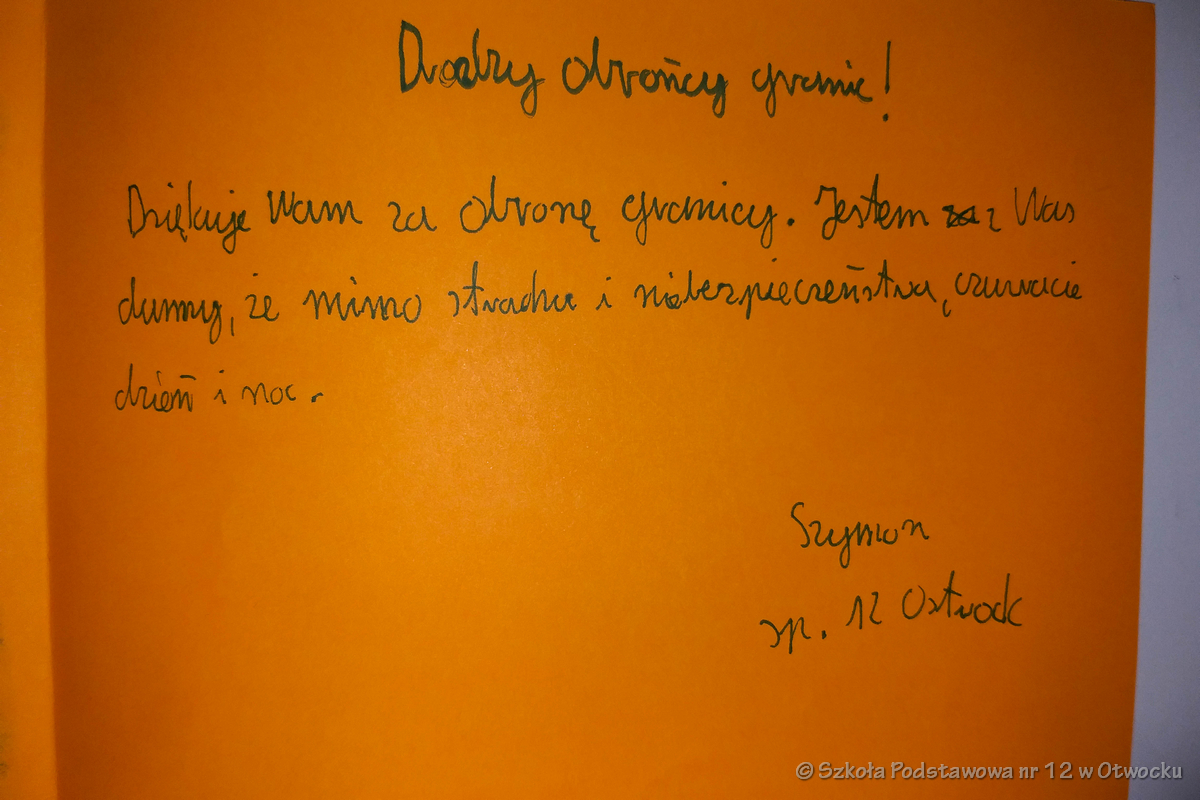 Drodzy obrońcy granic!
Dziękuje Wam za obronę granicy. Jestem z Was
dumny, że mimo strachu i niebezpieczeństwa, czuwacie
dzień i noc.
Szymon
sp. 12 Ostwock
© Szkoła Podstawowa nr 12 w Otwocku